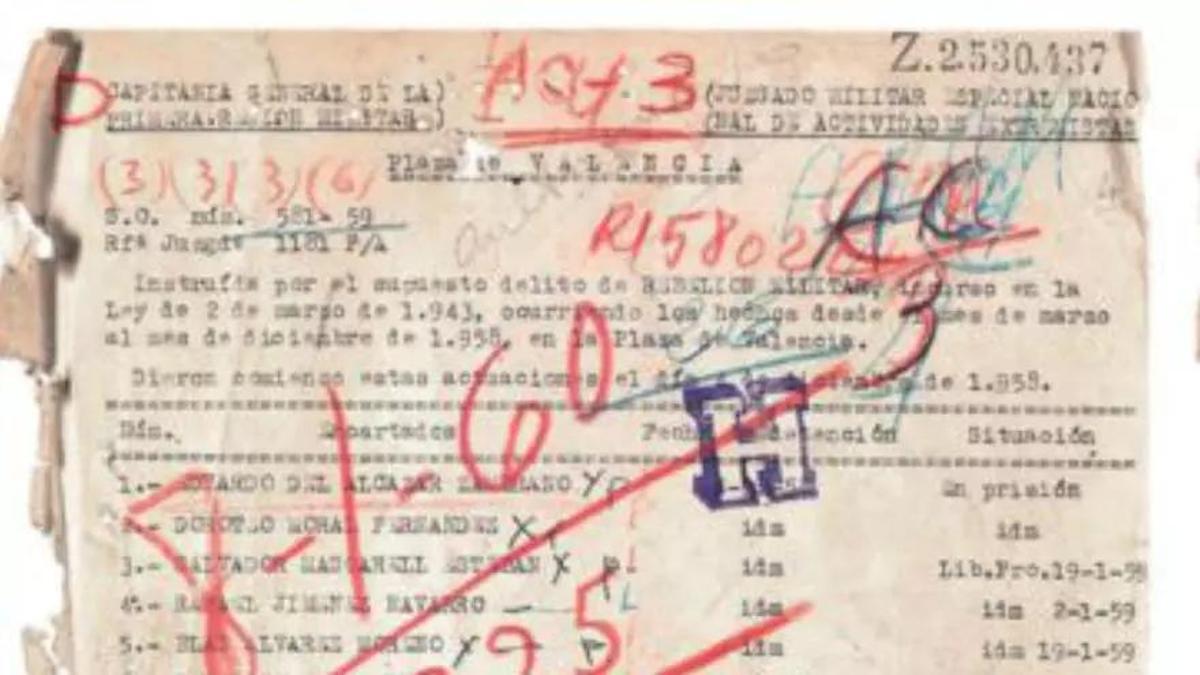 Z.2.530.437
CAPITANIA GENERAL DE LA) (JUZGADO MILITAR ESPECIAL NACIO
PRIMERA REGION MILITAR ) (NAL DE ACTIVIDADES EXTREMISTAS
Plaza de VALENCIA
(3)(3)3)(6)
S.O. núm. 581- 59
Rfª Juzgdº 1181 P/A
R15802
AC
Instruída por el supuesto delito de REBELION MILITAR, incurso en la
Ley de 2 de marzo de 1.943, ocurriendo los hechos desde el mes de marzo
al mes de diciembre de 1.958, en la Plaza de Valencia.
3
Dieron comienzo estas actuaciones el de 1.958.
H
Núm. Encartados Fecha detención Situación
1.- EDUARDO DEL ALCAZAR En prisión
2.- DOROTEO MORAL FERNANDEZ X idm idm
3.- SALVADOR MASCARELL ESTEBAN X idm Lib.Pro.19-1-59
4.- RAFAEL JIMENEZ NAVARRO idm idm 2-1-59
5.- BLAS ALVAREZ MORENO X idm idm 19-1-59